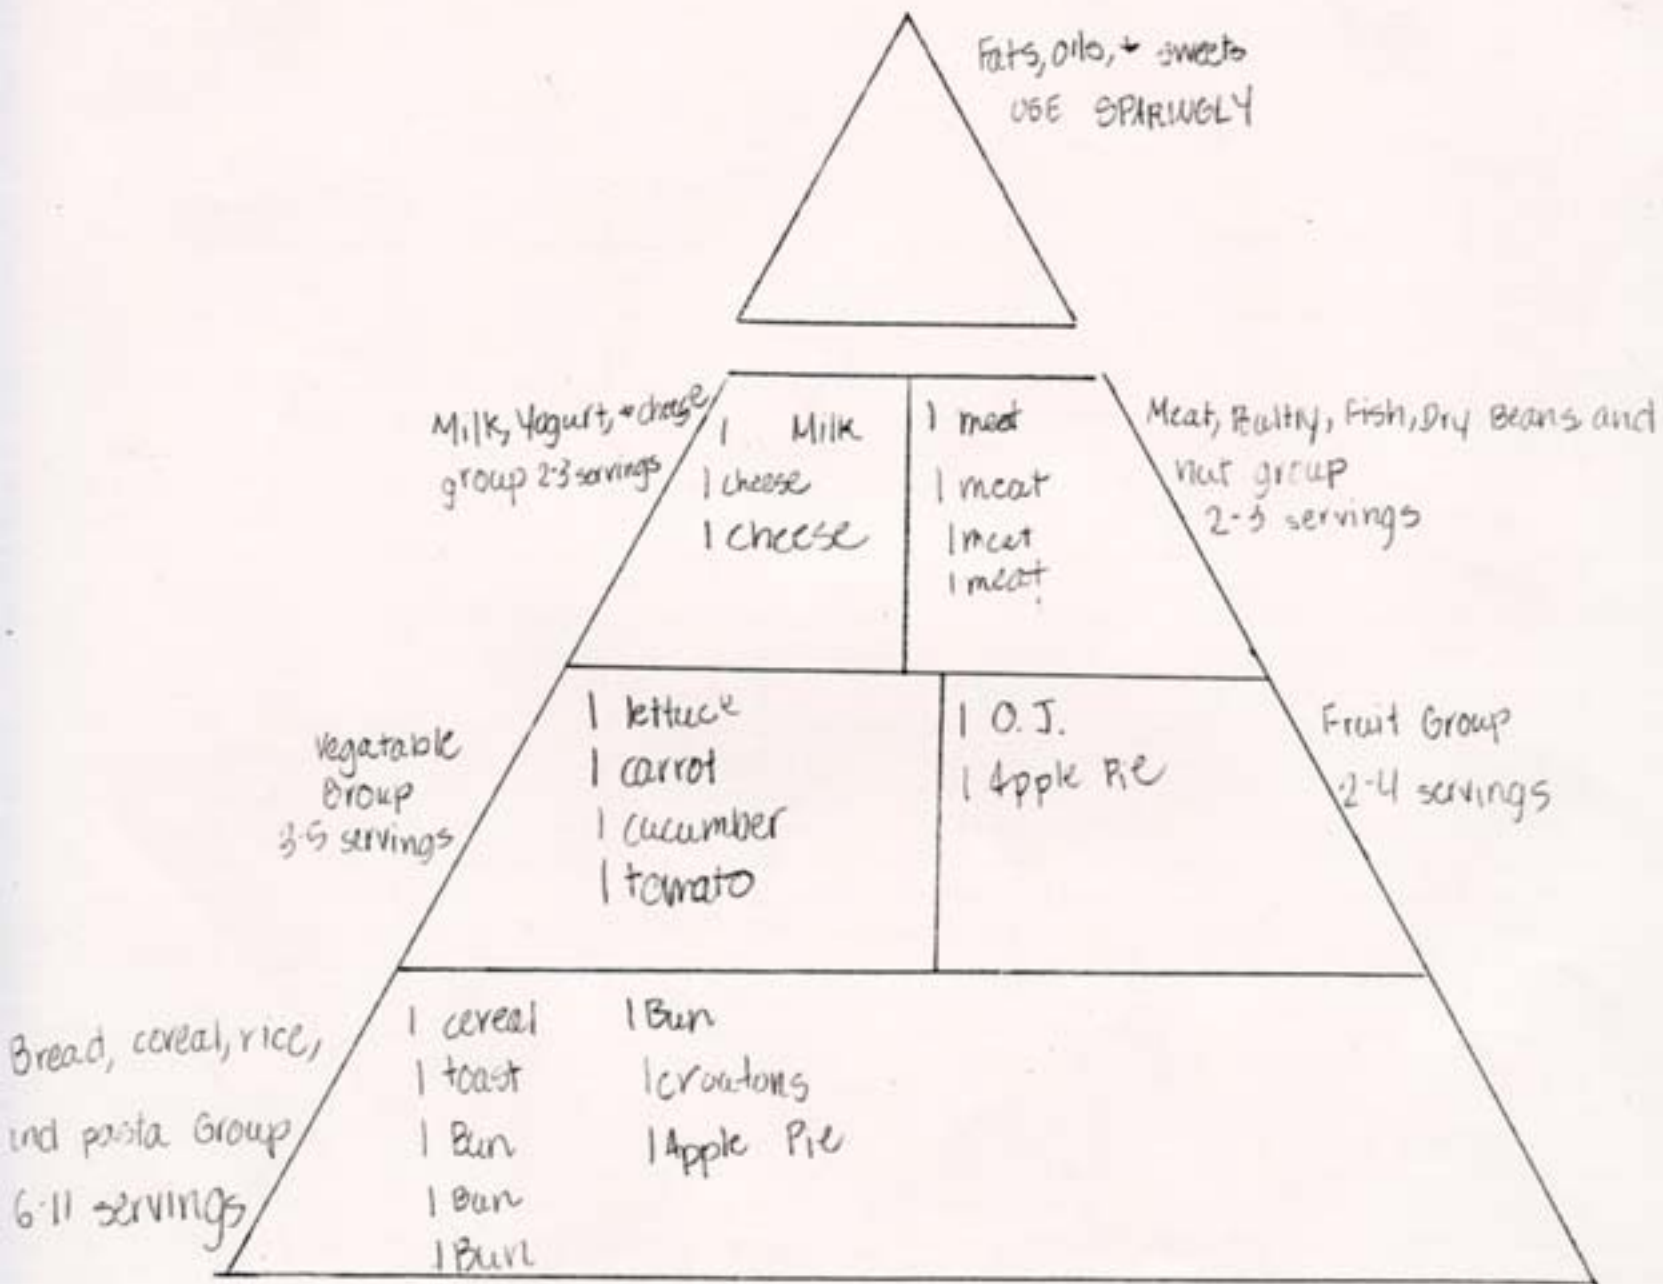 Fats, oils, + sweets
USE SPARINGLY
Milk, Yogurt, + cheese
group 2-3 servings
1 Milk
1 cheese
1 cheese
1 meat
1 meat
1 meat
1 meat
Meat, Poultry, Fish, Dry Beans and
nut group
2-3 servings
Vegatable
Group
3-5 servings
1 lettuce
1 carrot
1 cucumber
1 tomato
1 O.J.
1 Apple Pie
Fruit Group
2-4 servings
Bread, cereal, rice,
and pasta Group
6-11 servings
1 cereal
1 toast
1 Bun
1 Bun
1 Bun
1 Bun
1 croutons
1 Apple Pie